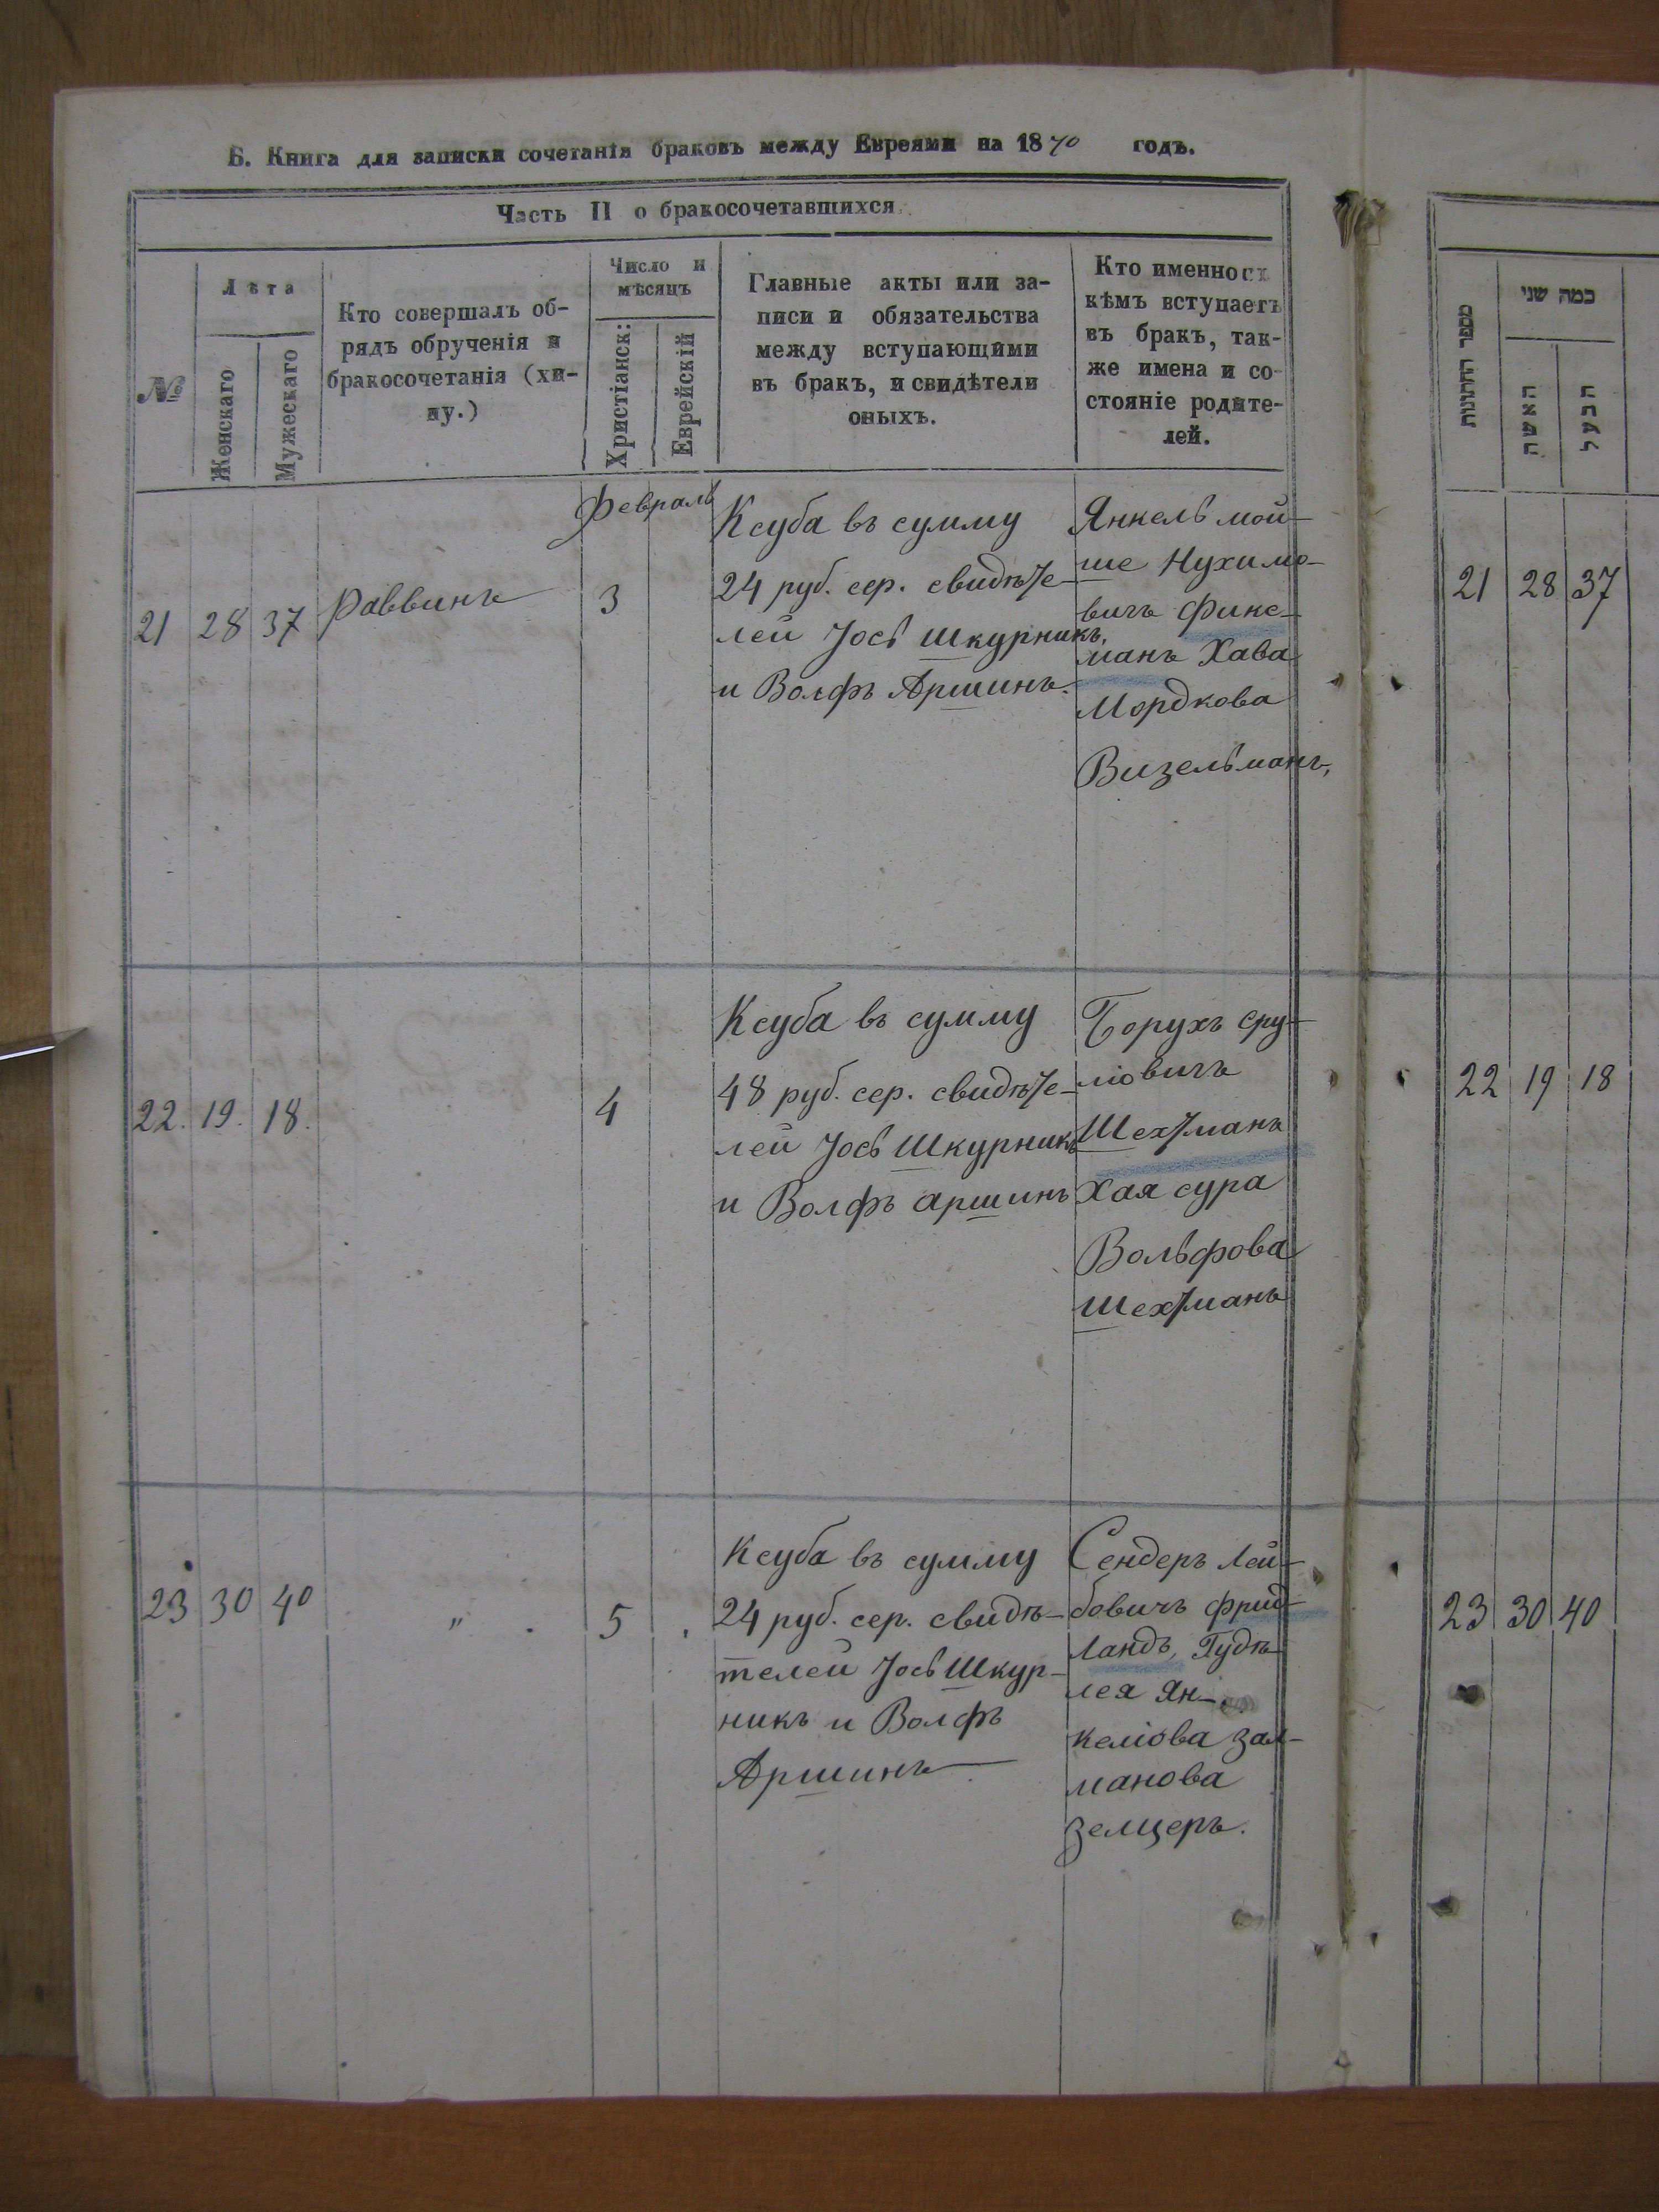 Б. Книга для записки сочетанія браковъ между Евреями на 1870 годъ.
Часть II о бракосочетавшихся
№
Лѣта
Женскаго
Мужескаго
Кто совершалъ об-
рядъ обрученія и
бракосочетанія (хи-
пу.)
Число и
мѣсяцъ
Христіанск:
Еврейскій
Главные акты или за-
писи и обязательства
между вступающими
въ бракъ, и свидѣтели
оныхъ.
Кто именно съ
кѣмъ вступаетъ
въ бракъ, так-
же имена и со-
стояніе родите-
лей.
Февраль
21 28 37 Раввинъ 3
Ксуба въ сумму
24 руб. сер. свидѣте-
лей Іось Шкурникъ,
и Волфъ Аршинъ.
Янкель мой-
ше Нухимо-
вичъ Фикс-
манъ Хава
Мордкова
Визельманъ,
22. 19. 18. 4
Ксуба въ сумму
48 руб. сер. свидѣте-
лей Іось Шкурникъ
и Волфъ аршинъ
Борухъ сру-
ліовичъ
Шехтманъ
Хая сура
Вольфова
Шехтманъ
23 30 40 " 5
Ксуба въ сумму
24 руб. сер. свидѣ-
телей Іось Шкур-
никъ и Волфъ
Аршинъ
Сендеръ Лей-
бовичъ Фрид-
ландъ, Гудѣ-
лея Ян-
келіова зал-
манова
зелцеръ.
מספר החתונות
כמה שני
האשה
הבעל
21 28 37
22 19 18
23 30 40